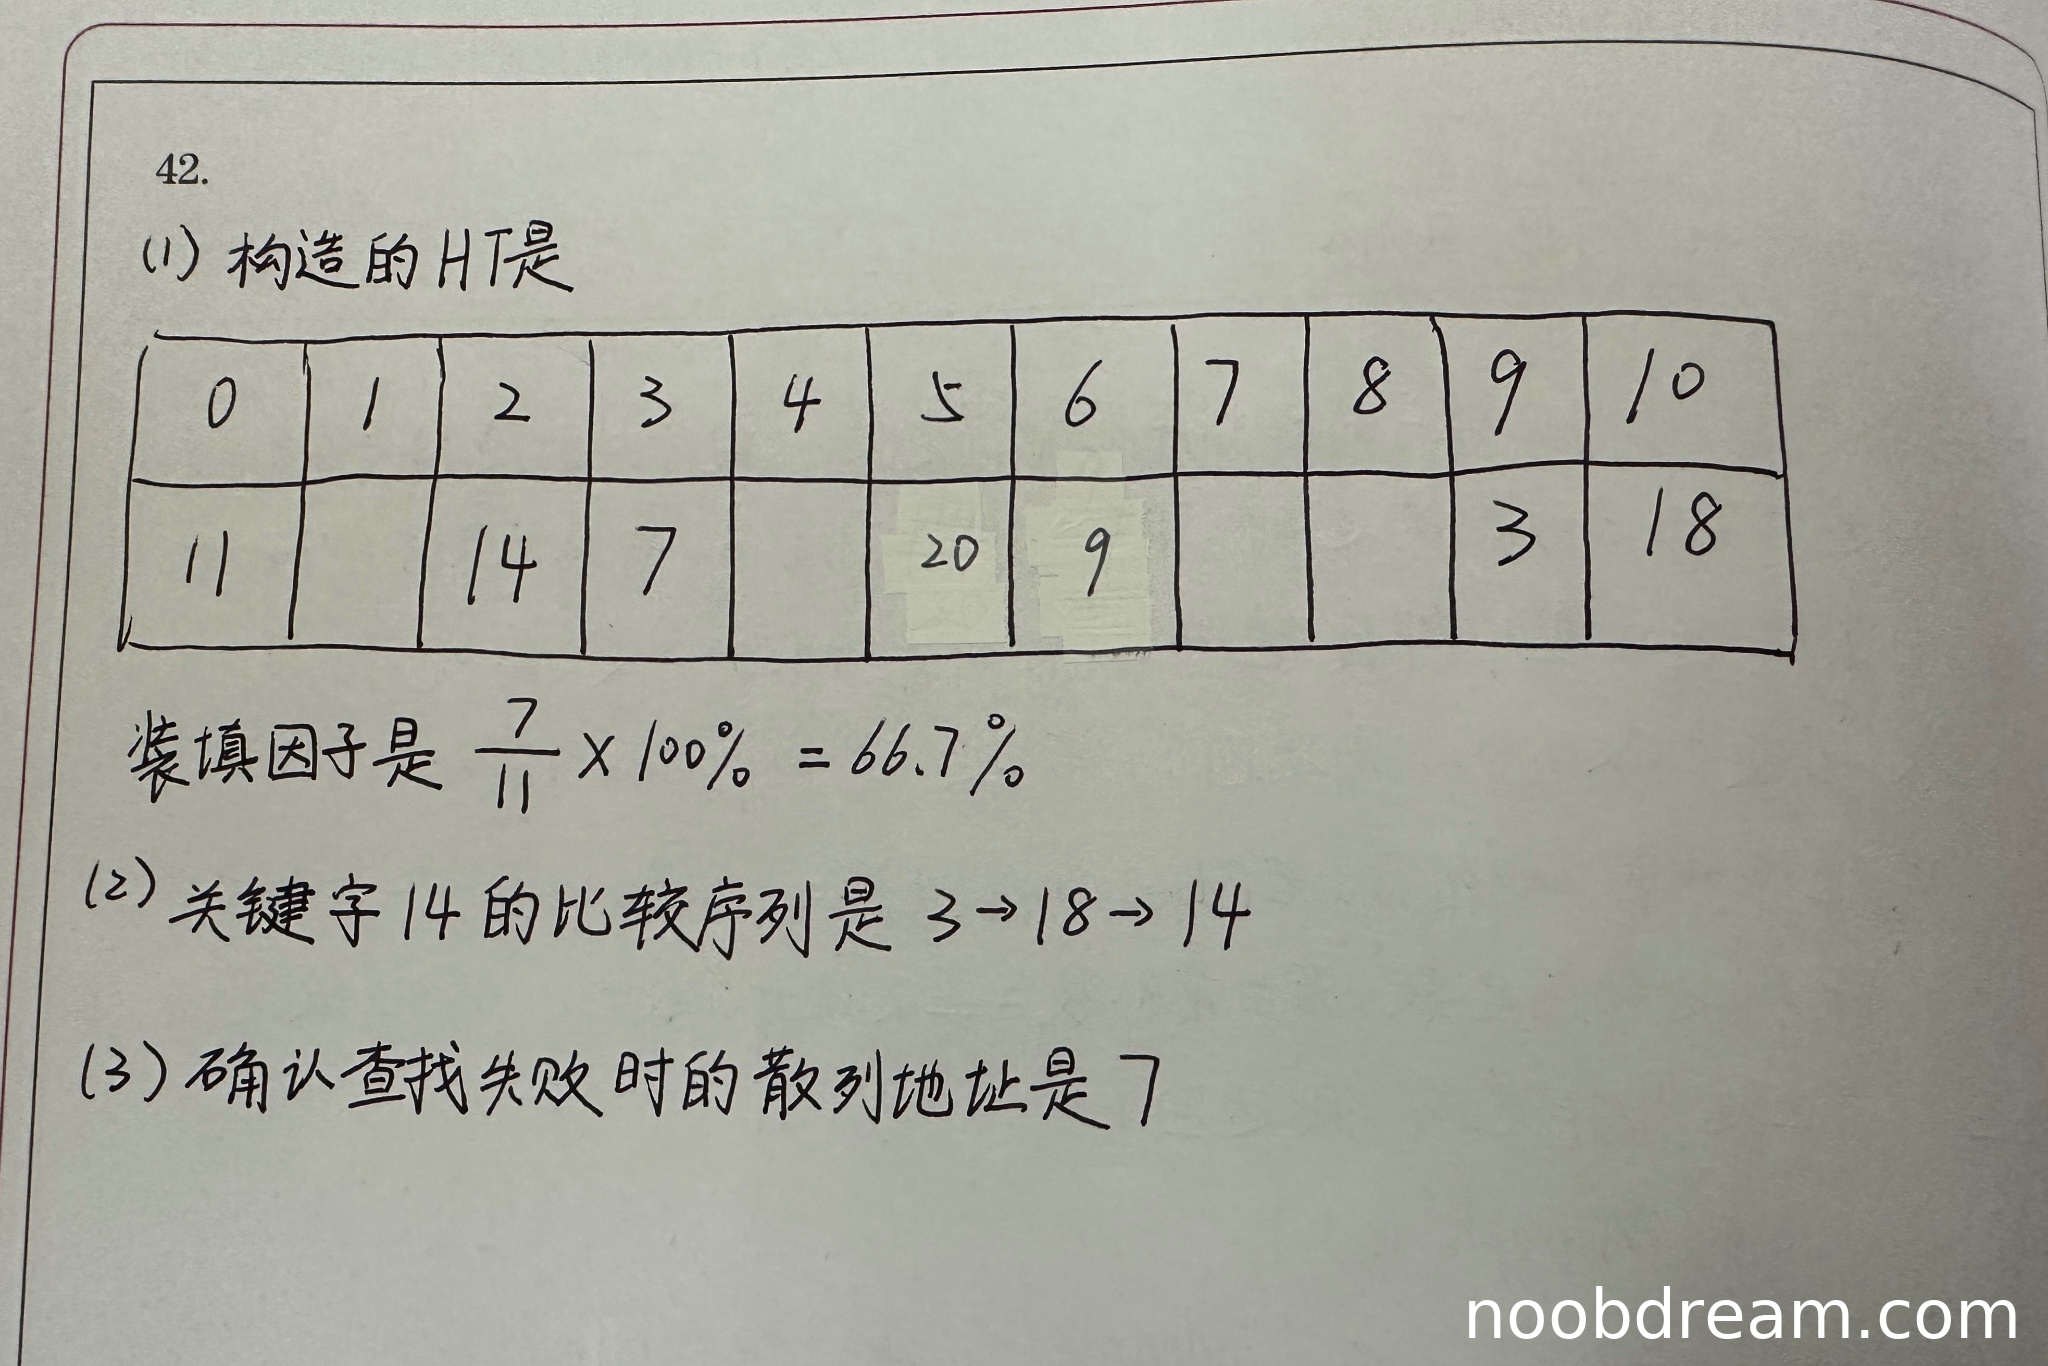 42.
(1) 构造的HT是
0 1 2 3 4 5 6 7 8 9 10
11 14 7 20 9 3 18
装填因子是 7/11 × 100% = 66.7%
(2) 关键字14的比较序列是 3→18→14
(3) 确认查找失败时的散列地址是7
noobdream.com